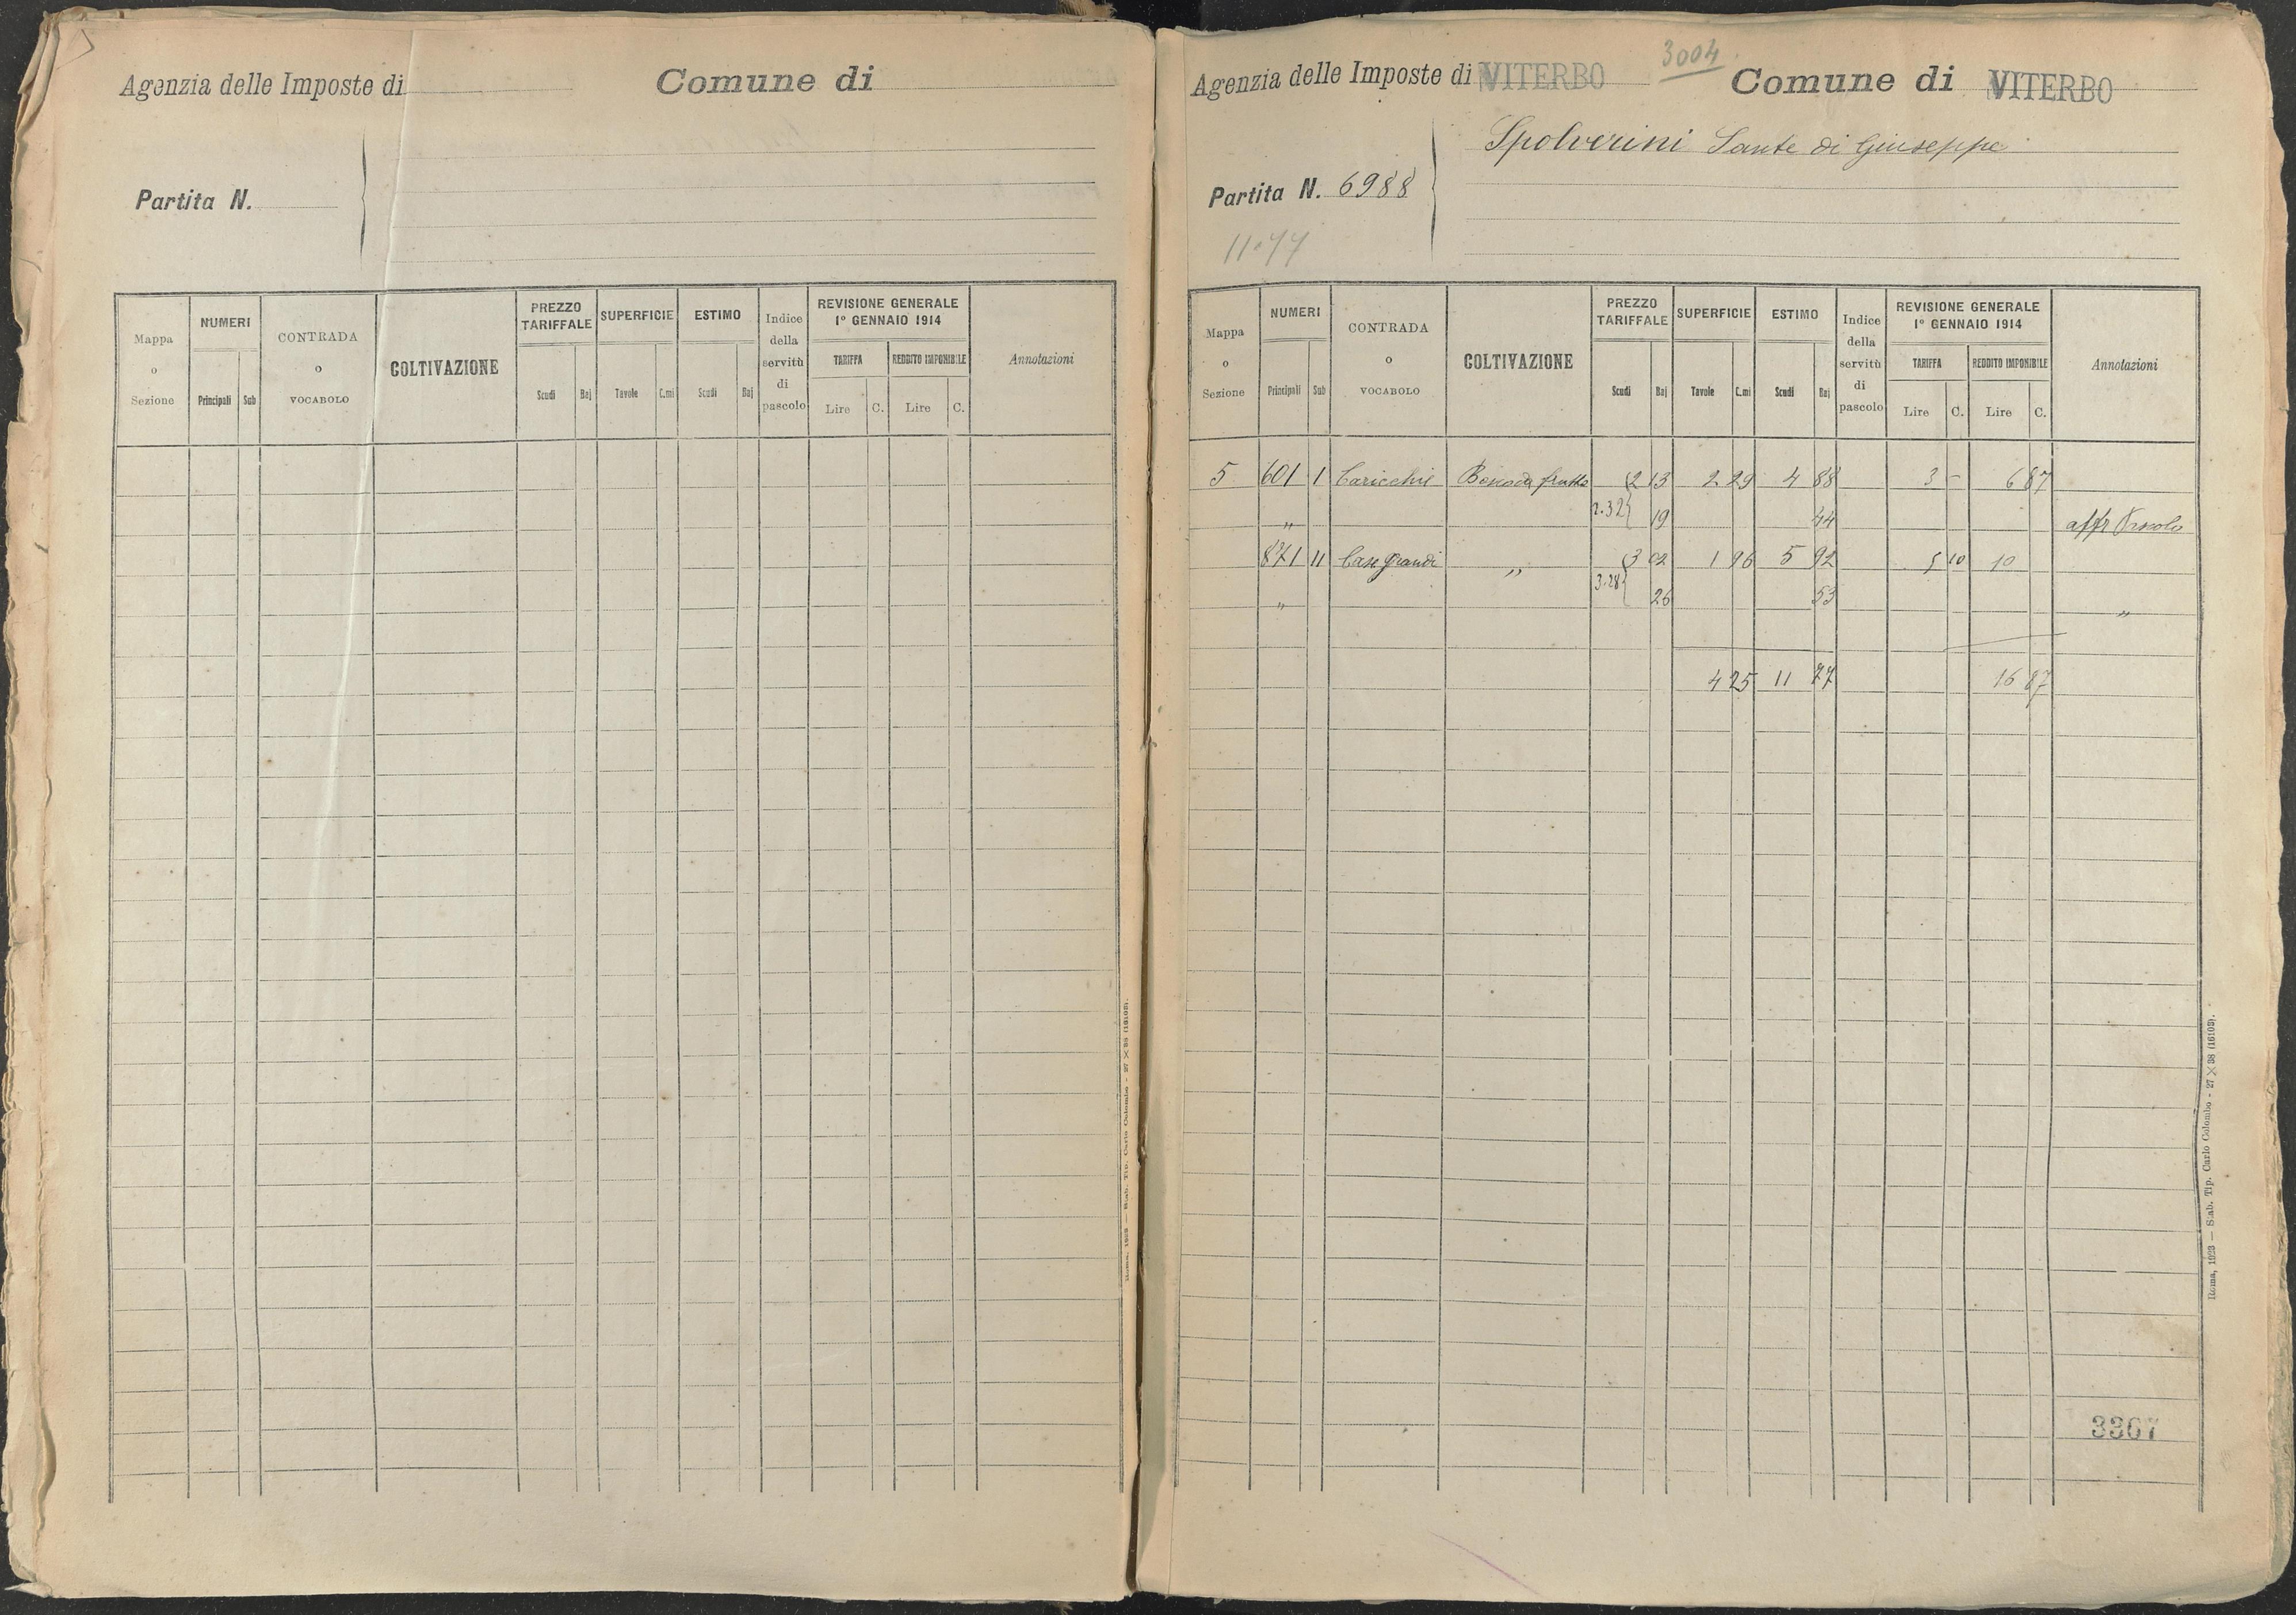 Agenzia delle Imposte di
Comune di
Partita N.
Mappa o Sezione
NUMERI
Principali Sub
CONTRADA o VOCABOLO
COLTIVAZIONE
PREZZO TARIFFALE
Scudi Baj
SUPERFICIE
Tavole C.mi
ESTIMO
Scudi Baj
Indice della servitù di pascolo
REVISIONE GENERALE
1° GENNAIO 1914
TARIFFA REDDITO IMPONIBILE
Lire C. Lire C.
Annotazioni
Roma, 1923 — Stab. Tip. Carlo Colombo - 27 × 38 (16105).
3004
Agenzia delle Imposte di VITERBO Comune di VITERBO
Spolverini Sante di Giuseppe
Partita N. 6988
Mappa o Sezione
NUMERI
Principali Sub
CONTRADA o VOCABOLO
COLTIVAZIONE
PREZZO TARIFFALE
Scudi Baj
SUPERFICIE
Tavole C.mi
ESTIMO
Scudi Baj
Indice della servitù di pascolo
REVISIONE GENERALE
1° GENNAIO 1914
TARIFFA REDDITO IMPONIBILE
Lire C. Lire C.
Annotazioni
5 601 1 Caricchie frutto 2 13 2 29 4 88 3 - 6 87
" 2.32 19 44 affr Pascolo
871 11 Case grandi " 3 02 1 96 5 92 5 10 10
" 3.28 26 53 "
4 25 11 77 16 87
3367
Roma, 1923 — Stab. Tip. Carlo Colombo - 27 × 38 (16105).